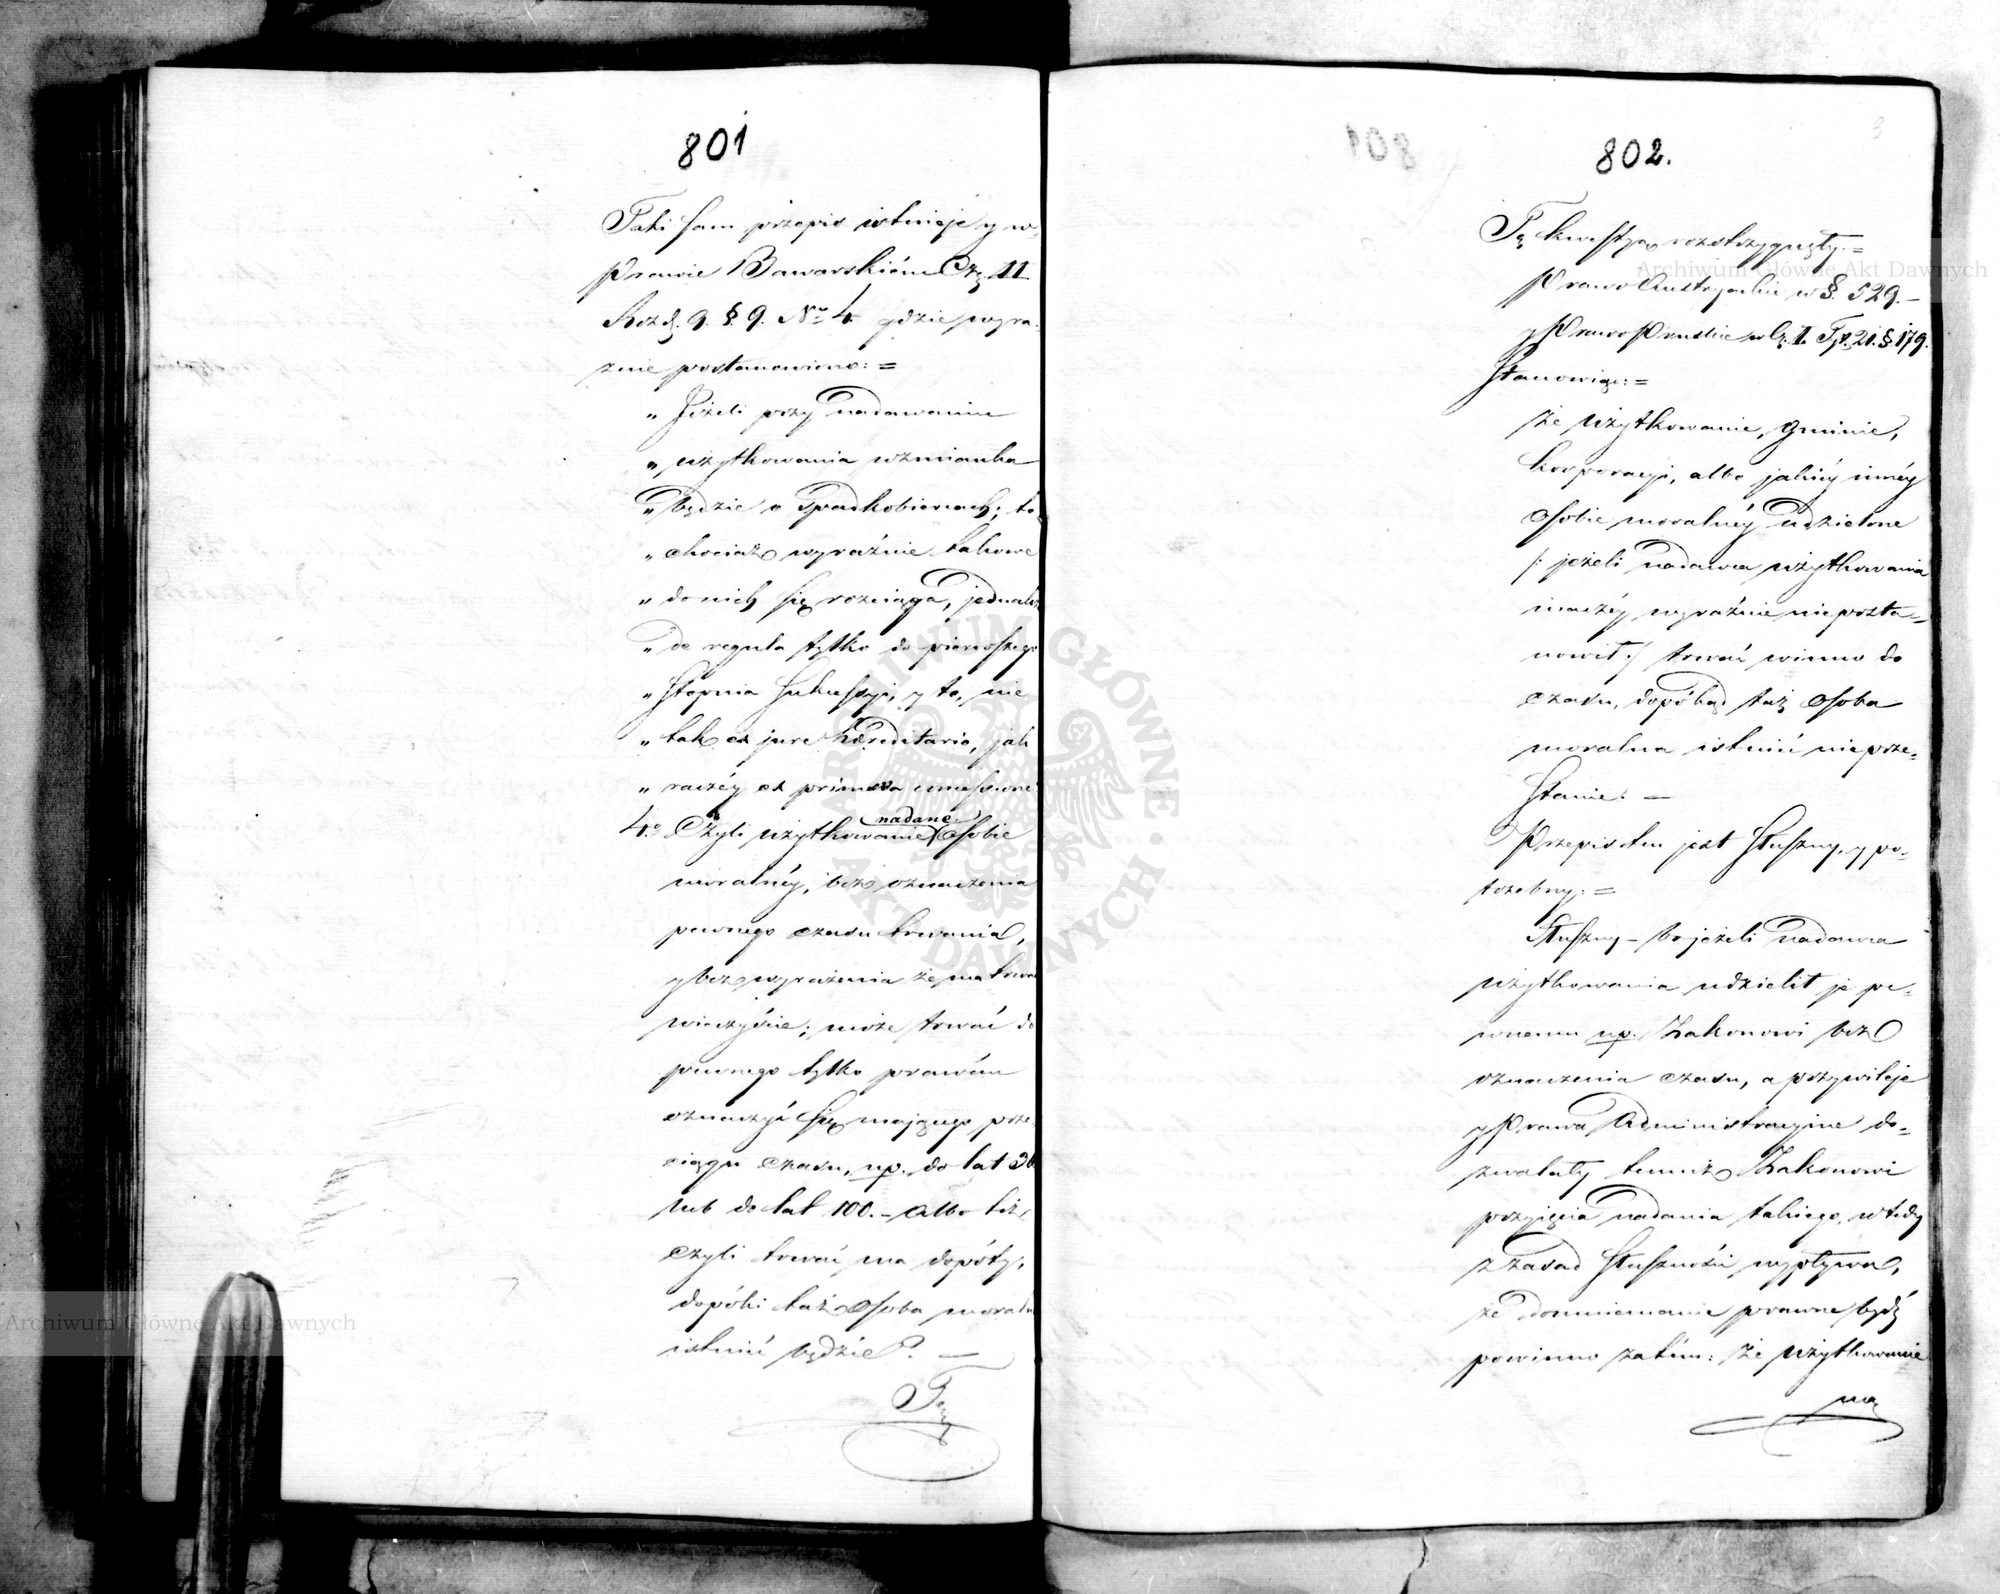 801
Taki sam przepis istnieje y w
Prawie Bawarskiém Czę. II
Rozdz. 9. §. 9. No 4. gdzie wyra-
znie postanowiono: =
„ Jeżeli przy nadawaniu
„ użytkowania wzmianka
„ będzie o Spadkobiercach; to
„ chociaż wyraźnie takowe
„ do nich się rozciąga, jednakże
„ de regula tylko do pierwszego
„ Stopnia Sukcessyi, y to, nie
„ tak ex jure hereditario, jak
„ raczéy ex primaeva concessione
4o Czyli użytkowanie nadane Osobie
moralnéy, bez oznaczenia
pewnego czasu trwania,
y bez wyrażenia że ma trwać
wieczyście; może trwać do
pewnego tylko prawem
oznaczyć się mającego prze-
ciągu czasu, np. do lat 30
lub do lat 100. – Albo też,
czyli trwać ma dopóty,
dopóki taż Osoba moralna
istnieć będzie?. —
Tę
802.
Tę kwestyę rozstrzygnęły: =
Prawo Austryackie w §. 529. –
y Prawo Pruskie w Cz. I. Tyt. 21. §. 179.
Stanowiąc: =
że użytkowanie, gminie,
korporacyi, albo jakiéy innéy
Osobie moralnéy udzielone
/: jeżeli nadawca użytkowania
inaczéy wyraźnie nieposta-
nowił :/ trwać winno do
czasu, dopókąd taż Osoba
moralna istnieć nieprze-
stanie. —
Przepis ten jest Słuszny, y po-
trzebny: =
Słuszny – bo jeżeli nadawca
użytkowania udzielił je pe-
wnemu np. Zakonowi bez
oznaczenia czasu, a przywileje
y Prawa Administracyjne do-
zwalały temuż Zakonowi
przyjęcia nadania takiego, wtedy
z Zasad Słuszności wypływa,
że domniemanie prawne być
powinno zatém: że użytkowanie
ma
Archiwum Główne Akt Dawnych
Archiwum Główne Akt Dawnych
ARCHIWUM GŁÓWNE · AKT DAWNYCH ·